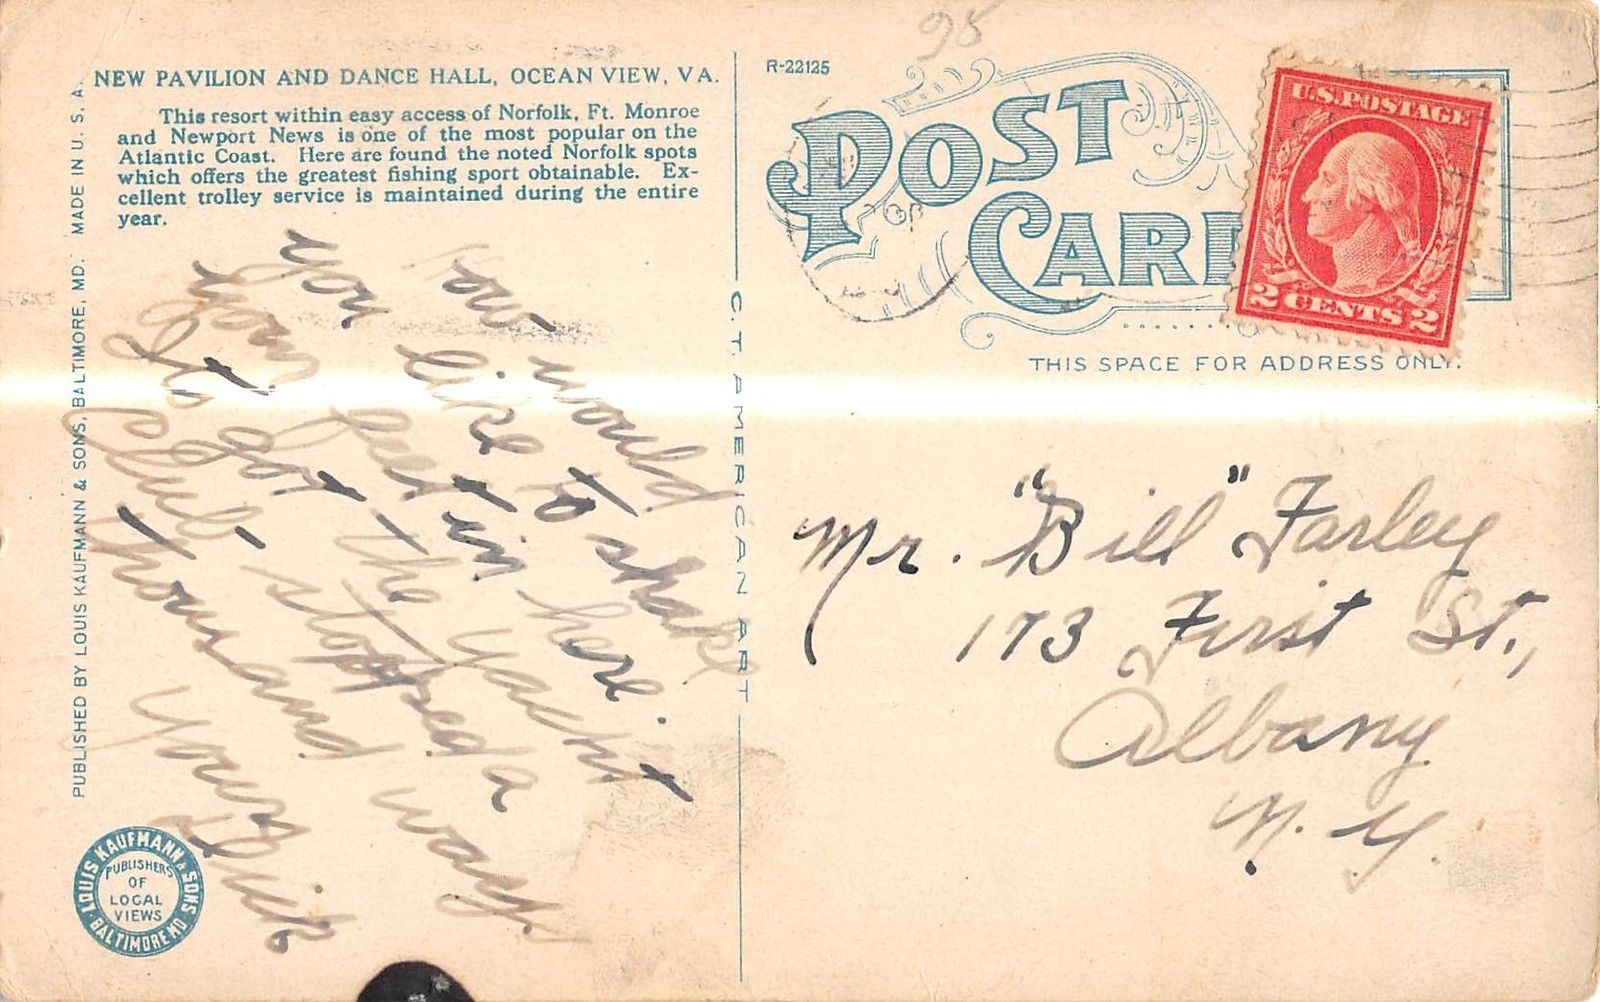 95
NEW PAVILION AND DANCE HALL, OCEAN VIEW, VA.
This resort within easy access of Norfolk, Ft. Monroe
and Newport News is one of the most popular on the
Atlantic Coast. Here are found the noted Norfolk spots
which offers the greatest fishing sport obtainable. Ex-
cellent trolley service is maintained during the entire
year.
How would
you like to shake
your feet in here.
It's got the yacht
Club stopped a
thousand ways
Your
Dick
PUBLISHED BY LOUIS KAUFMANN & SONS, BALTIMORE, MD. MADE IN U. S. A.
LOUIS KAUFMANN & SONS
BALTIMORE MD
PUBLISHERS
OF
LOCAL
VIEWS
C. T. AMERICAN ART
R-22125
POST
CAR
U.S. POSTAGE
2 CENTS 2
THIS SPACE FOR ADDRESS ONLY.
Mr. "Bill" Farley
173 First St.,
Albany
N. Y.